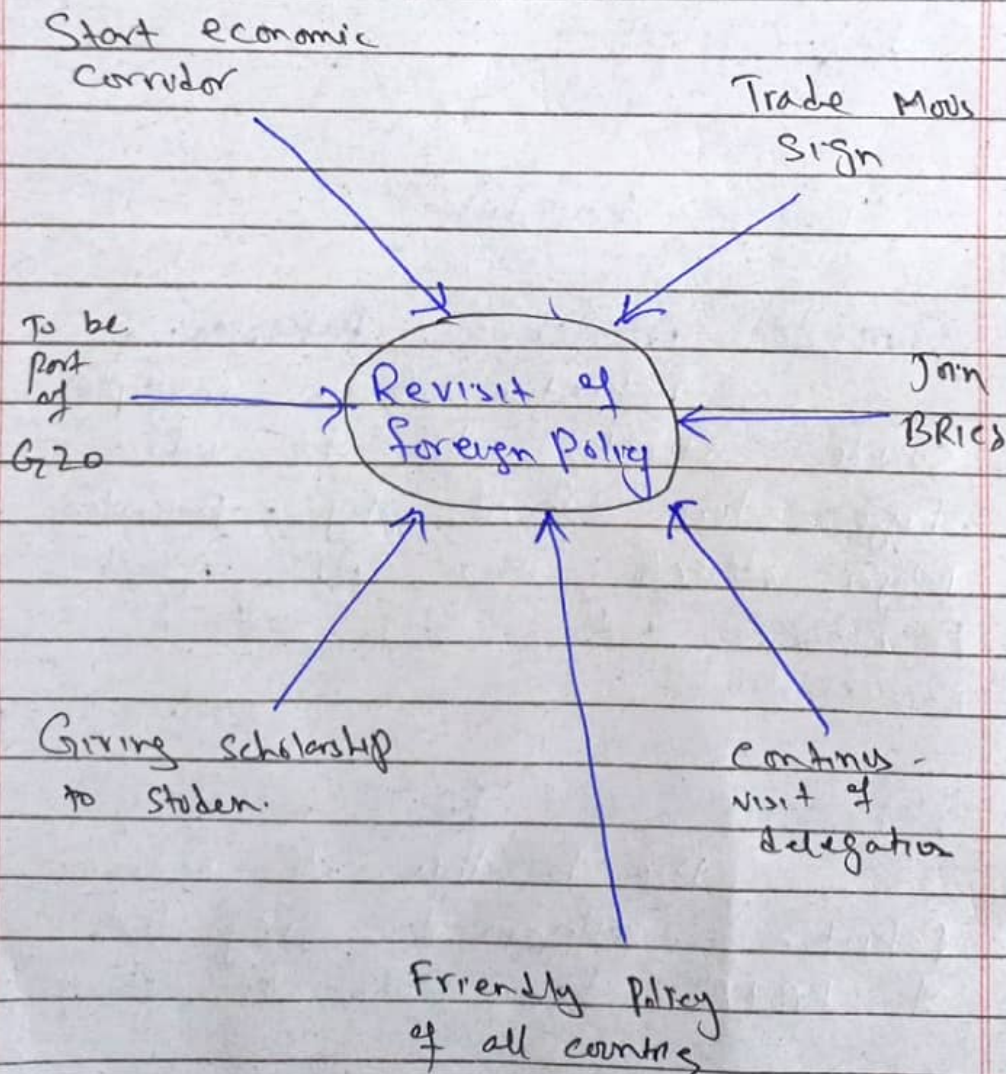 Start economic
Corridor
Trade Mous
Sign
To be
part
of
G20
Revisit of
foreign Policy
Join
BRICS
Giving scholarship
to studen.
continus -
visit of
delegation
Friendly Policy
of all countries